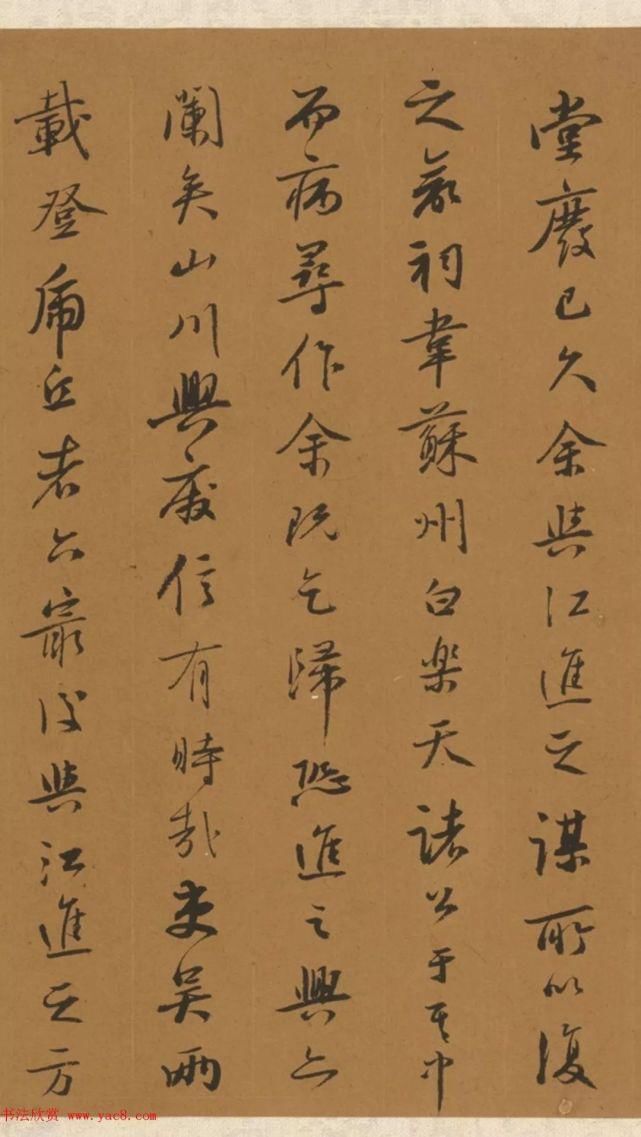 堂廢已久余與江進之謀所以復
之歲祠韋蘇州白樂天諸公于其中
而病尋作余既乞歸恐進之興亦
闌矣山川興廢信有時哉吏吳兩
載登虎丘者六最後與江進之方
书法欣赏 www.yac8.com